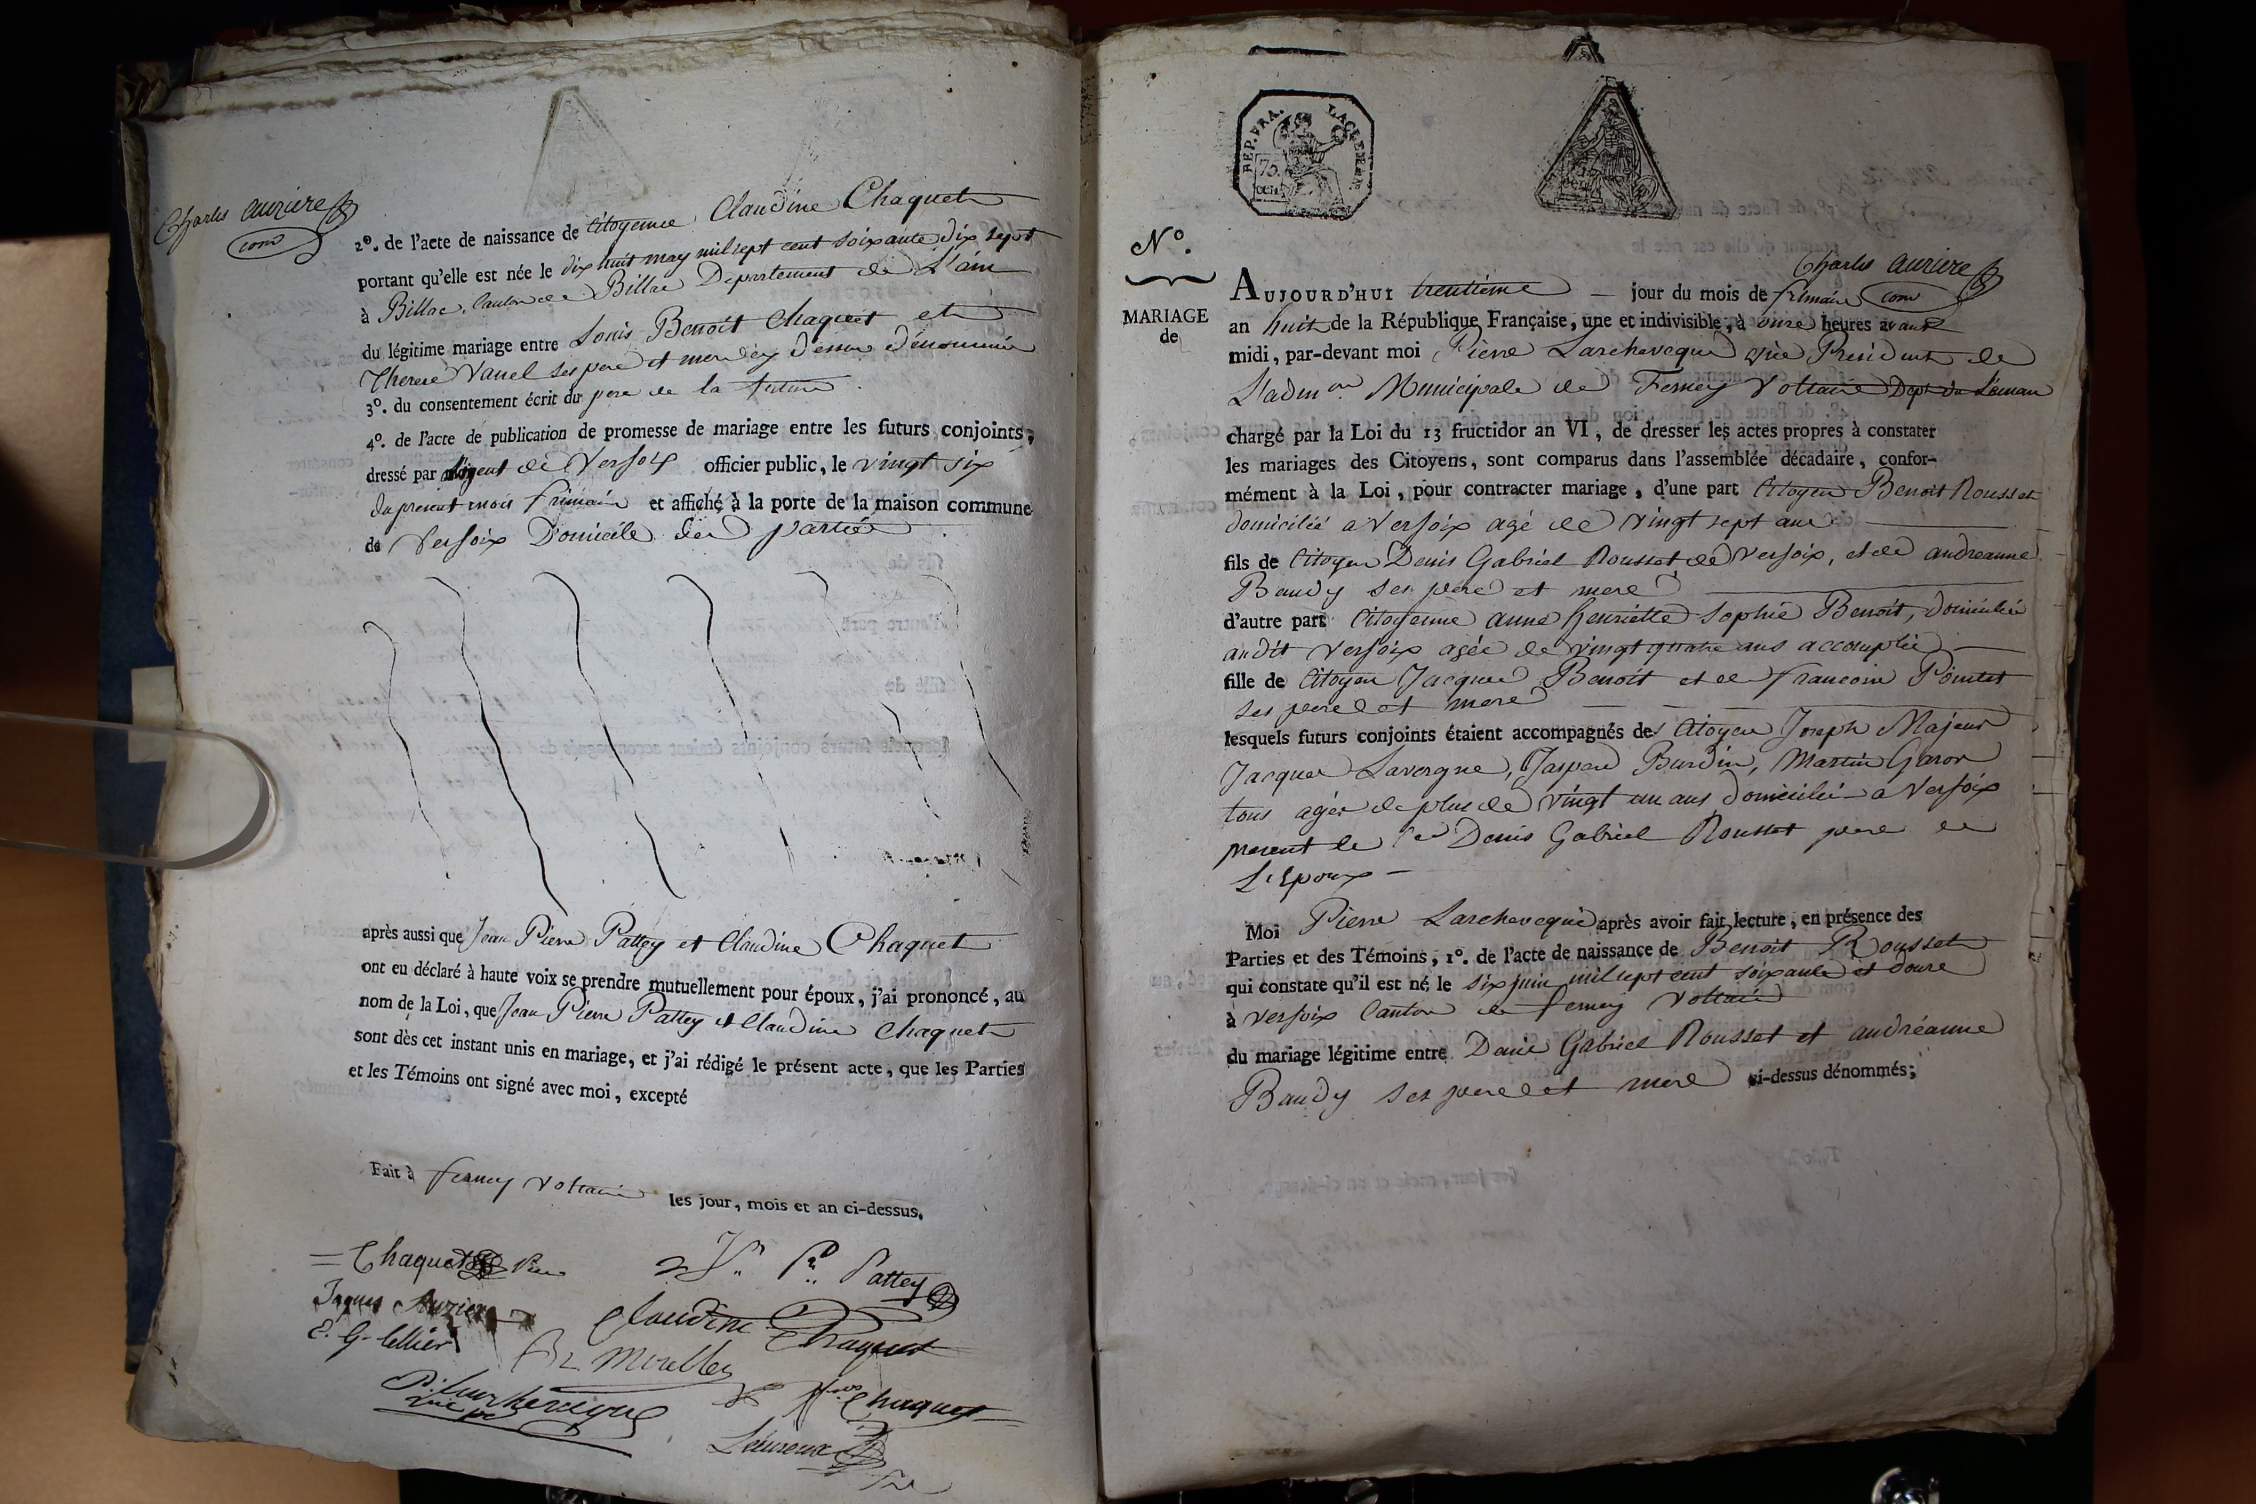 Charles auriere
com
2º. de l'acte de naissance de Citoyenne Claudine Chaquet
portant qu'elle est née le dix huit may mil sept cent soixante dix sept
à Billac, Canton de Billac Departement de L'ain
du légitime mariage entre Louis Benoit Chaquet et
Therese Vanel ses pere et mere dénommés
3º. du consentement écrit du pere de la future
4º. de l'acte de publication de promesse de mariage entre les futurs conjoints,
dressé par l'agent de Versoix officier public, le vingt six
du present mois frimaire et affiché à la porte de la maison commune
de Versoix Domicile des parties
après aussi que Jean Pierre Pattey et Claudine Chaquet
ont eu déclaré à haute voix se prendre mutuellement pour époux, j'ai prononcé, au
nom de la Loi, que Jean Pierre Pattey et Claudine Chaquet
sont dès cet instant unis en mariage, et j'ai rédigé le présent acte, que les Parties
et les Témoins ont signé avec moi, excepté
Fait à ferney Voltaire les jour, mois et an ci-dessus.
Chaquet
Jn. Pre. Pattey
Claudine Chaquet
P. Larcheveque
Chaquet
REP. FRA.
75
cen
Nº.
MARIAGE
de
Charles auriere
com
AUJOURD'HUI trentieme jour du mois de frimaire
an huit de la République Française, une et indivisible, à onze heures avant
midi, par-devant moi Pierre Larcheveque vice President de
L'admon Municipale de Ferney Voltaire Dept du Léman
chargé par la Loi du 13 fructidor an VI, de dresser les actes propres à constater
les mariages des Citoyens, sont comparus dans l'assemblée décadaire, confor-
mément à la Loi, pour contracter mariage, d'une part Citoyen Benoit Rousset
domicilié a Versoix agé de vingt sept ans
fils de Citoyen Denis Gabriel Rousset de Versoix, et de andreanne
Baudy ses pere et mere
d'autre part Citoyenne anne henriette Sophie Benoit, domiciliée
audit Versoix agée de vingt quatre ans accomplie
fille de Citoyen Jacques Benoit et de francoise Pointet
ses pere et mere
lesquels futurs conjoints étaient accompagnés des Citoyen Joseph Majeur
Jacques Lavergne, Jaspard Burdin, Martin
tous agés de plus de vingt un ans domiciliés a Versoix
present le Cen Denis Gabriel Rousset pere de
L'Epoux
Moi Pierre Larcheveque après avoir fait lecture, en présence des
Parties et des Témoins, 1º. de l'acte de naissance de Benoit Rousset
qui constate qu'il est né le six juin mil sept cent soixante et douze
à Versoix Canton de ferney Voltaire
du mariage légitime entre Denis Gabriel Rousset et andréanne
Baudy ses pere et mere ci-dessus dénommés;